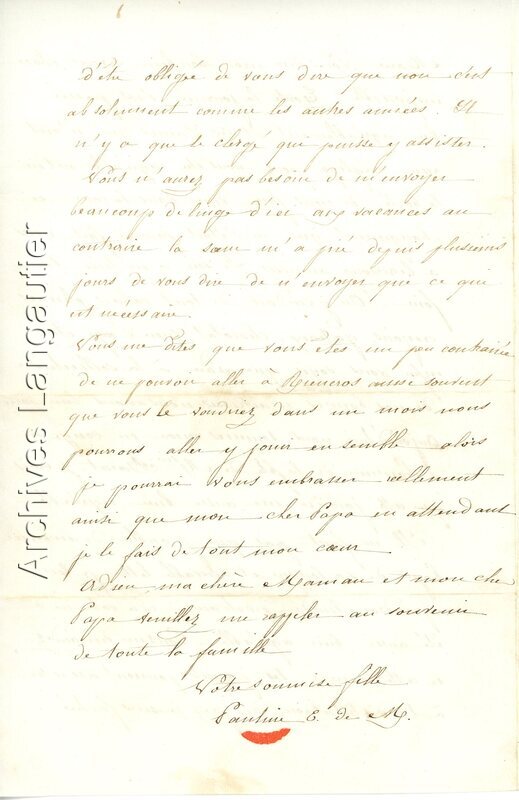 6
d'être obligée de vous dire que non c'est
absolument comme les autres années. Il
n'y a que le clergé qui puisse y assister.
Vous n'aurez pas besoin de m'envoyer
beaucoup de linge d'ici aux vacances au
contraire la sœur m'a prié depuis plusieurs
jours de vous dire de n'envoyer que ce qui
est nécessaire.
Vous me dites que vous êtes un peu contrariée
de ne pouvoir aller à Rieucros aussi souvent
que vous le voudriez dans un mois nous
pourrons aller y jouir ensemble alors
je pourrai vous embrasser réellement
ainsi que mon cher Papa en attendant
je le fais de tout mon cœur
Adieu ma chère Maman et mon cher
Papa veuillez me rappeler au souvenir
de toute la famille
Votre soumise fille
Pauline E. de M.
Archives Langautier